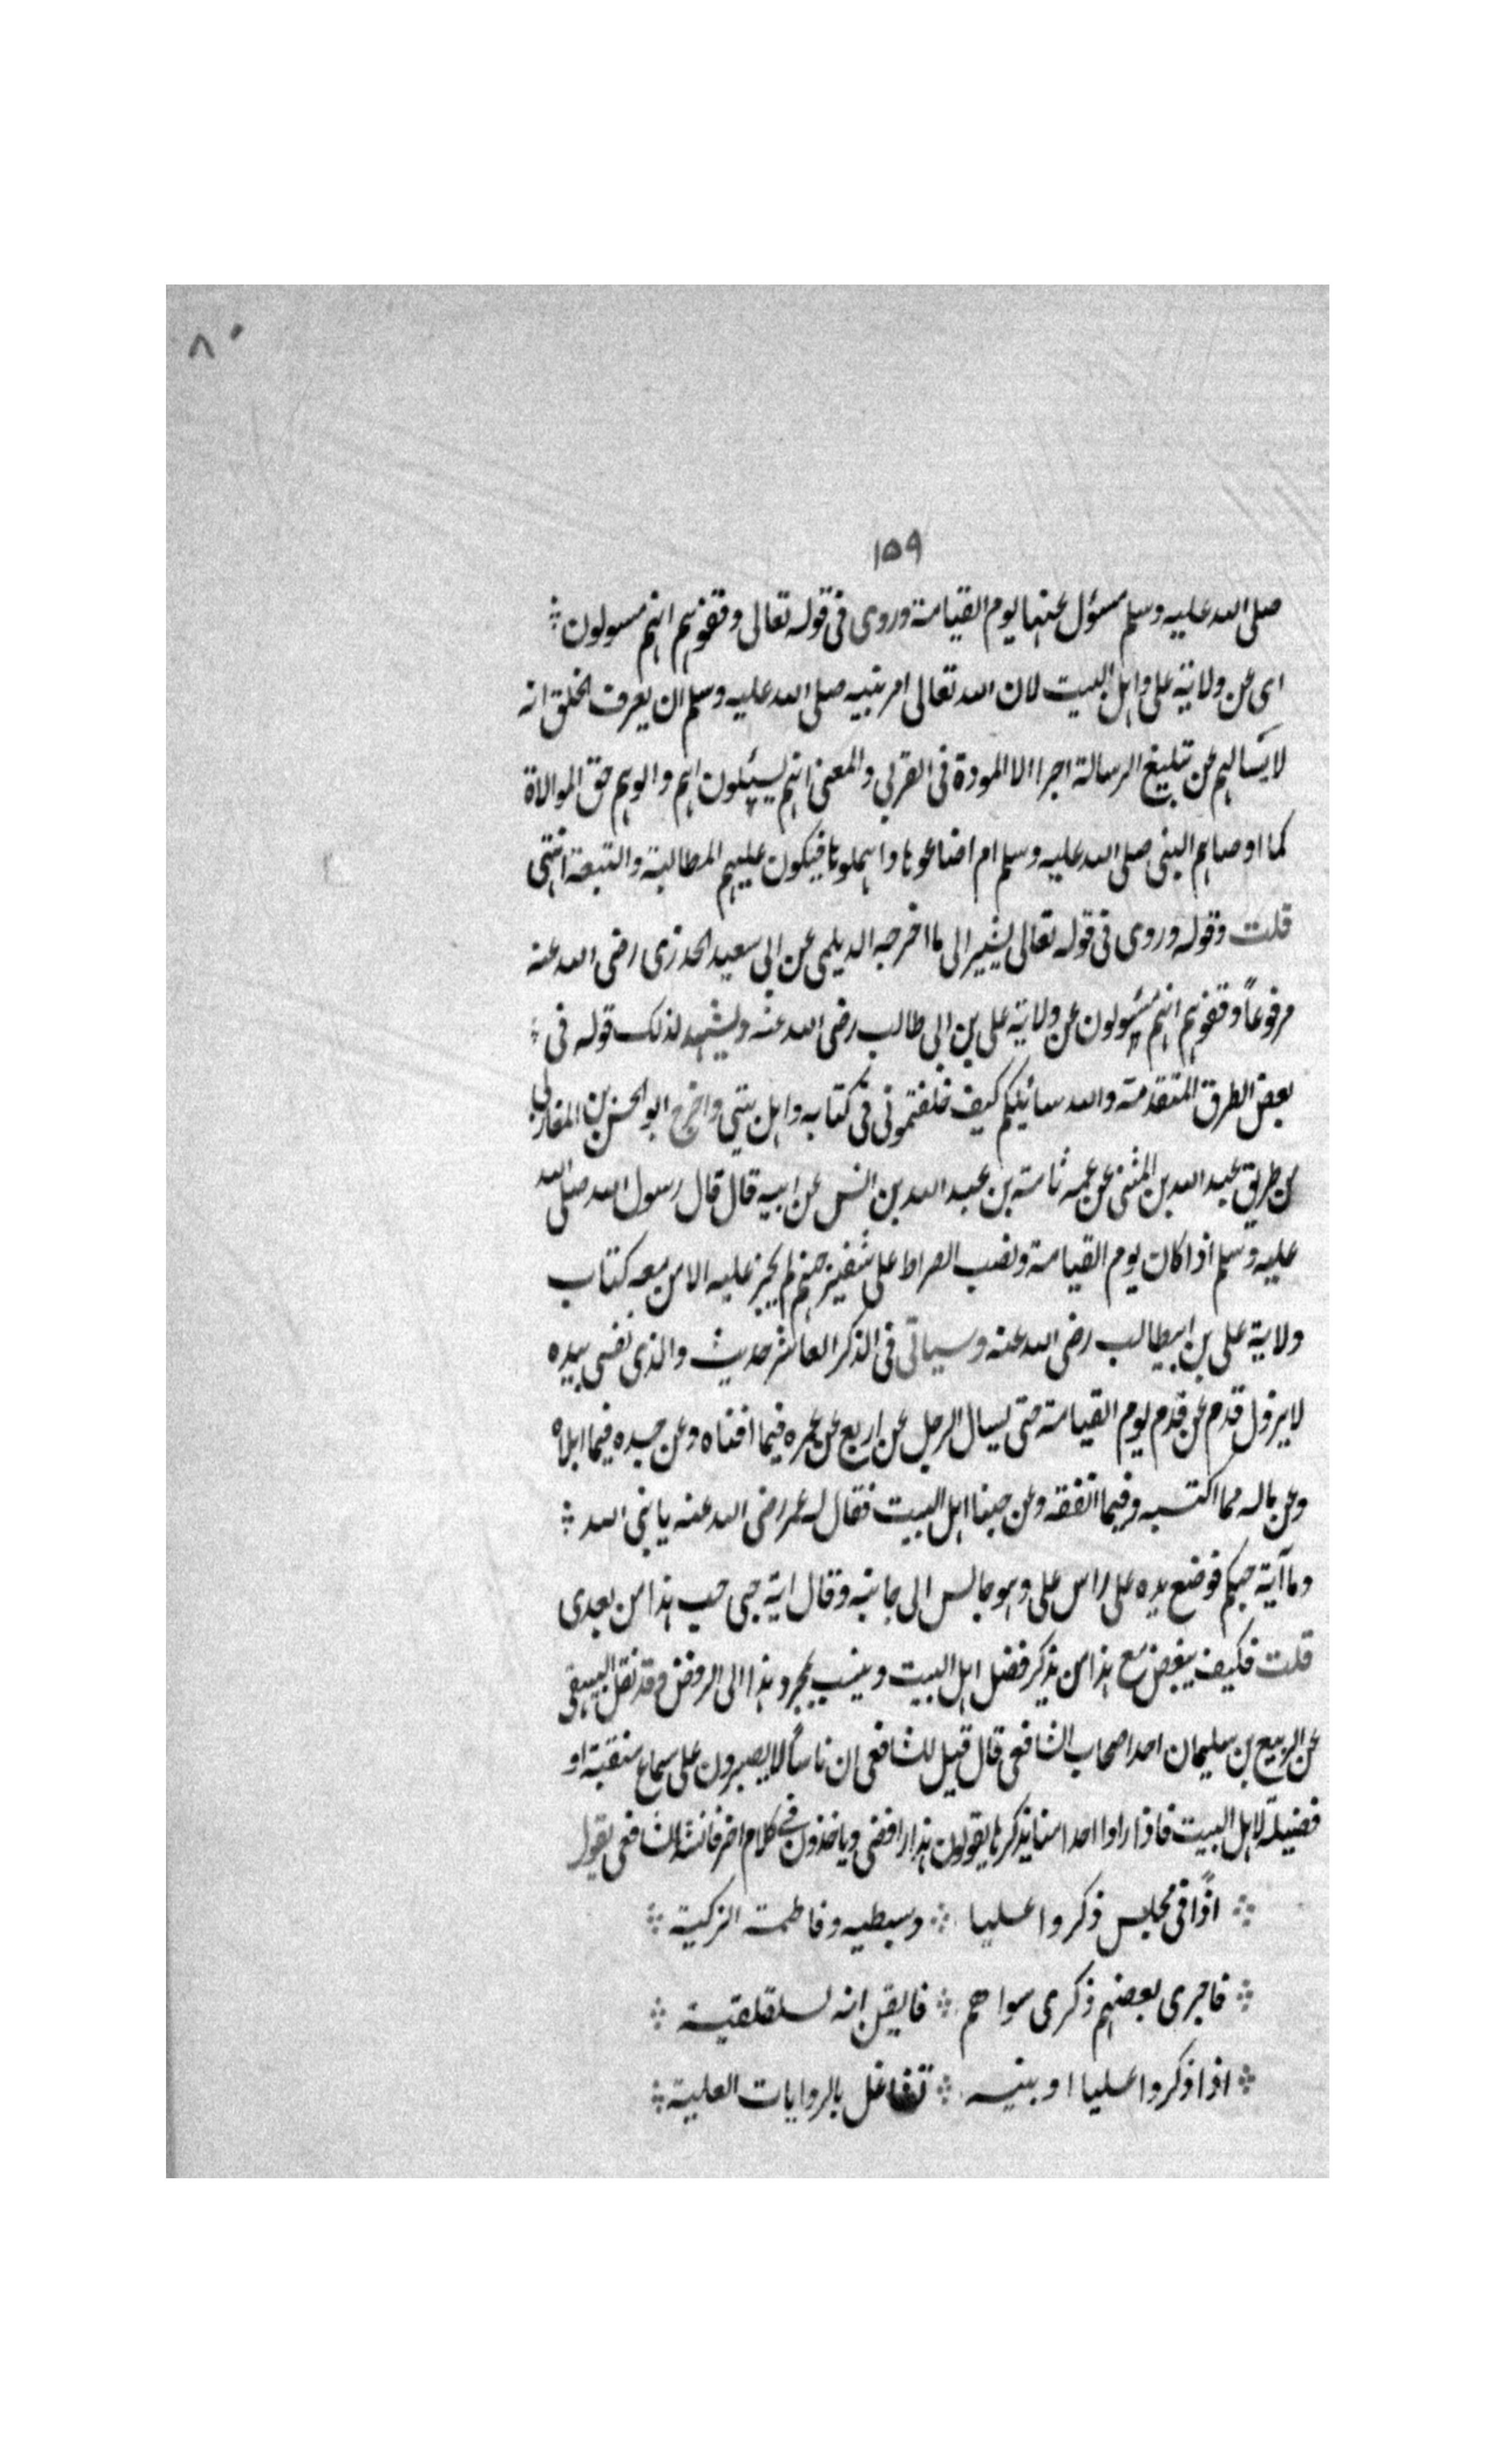 ٨٠
١٥٩
صلى الله عليه وسلم مسؤل عنها يوم القيامة وروى فى قوله تعالى وقفوهم انهم مسولون
اى عن ولاية على واهل البيت لان الله تعالى امر نبيه صلى الله عليه وسلم ان يعرف الخلق انه
لا يسالهم عن تبليغ الرسالة اجرا الا المودة فى القربى والمعنى انهم يسئلون اهم والوهم حق الموالاة
كما اوصاهم النبى صلى الله عليه وسلم ام اضاعوها واهملوها فيكون عليهم المطالبة والتبعة انتهى
قلت وقوله وروى فى قوله تعالى يشير الى ما اخرجه الديلمى عن ابى سعيد الخدرى رضى الله عنه
مرفوعاً وقفوهم انهم مسئولون عن ولاية على بن ابى طالب رضى الله عنه ويشهد لذلك قوله فى
بعض الطرق المتقدمة والله سائلكم كيف خلفتمونى فى كتابه واهل بيتى واخرج ابو الحسن بن المغازلى
من طريق عبد الله بن المثنى عن عمه ثمامة بن عبد الله بن انس عن ابيه قال قال رسول الله صلى الله
عليه وسلم اذا كان يوم القيامة ونصب الصراط على شفير جهنم لم يجز عليه الا من معه كتاب
ولاية على بن ابيطالب رضى الله عنه وسياتى فى الذكر العاشر حديث والذى نفسى بيده
لا يزول قدم عن قدم يوم القيامة حتى يسال الرجل عن اربع عن عمره فيما افناه وعن جسده فيما ابلاه
وعن ماله مما اكتسبه وفيما انفقه وعن حبنا اهل البيت فقال له عمر رضى الله عنه يا نبى الله
وما آية حبكم فوضع يده على راس على وهو جالس الى جانبه وقال اية حبى حب هذا من بعدى
قلت فكيف يبغض مع هذا من يذكر فضل اهل البيت وينسب بمجرد هذا الى الرفض وقد نقل البيهقى
عن الربيع بن سليمان احد اصحاب الشافعى قال قيل للشافعى ان ناسًا لا يصبرون على سماع منقبة او
فضيلة لاهل البيت فاذا راوا احدا منا يذكرها يقولون هذا رافضى وياخذون فى كلام اخر فانشد الشافعى يقول
اذا فى مجلس ذكروا عليا وسبطيه وفاطمة الزكية
فاجرى بعضهم ذكرى سواهم فايقن انه لسلقلقية
اذا ذكروا عليا او بنيه تشاغل بالروايات العلية